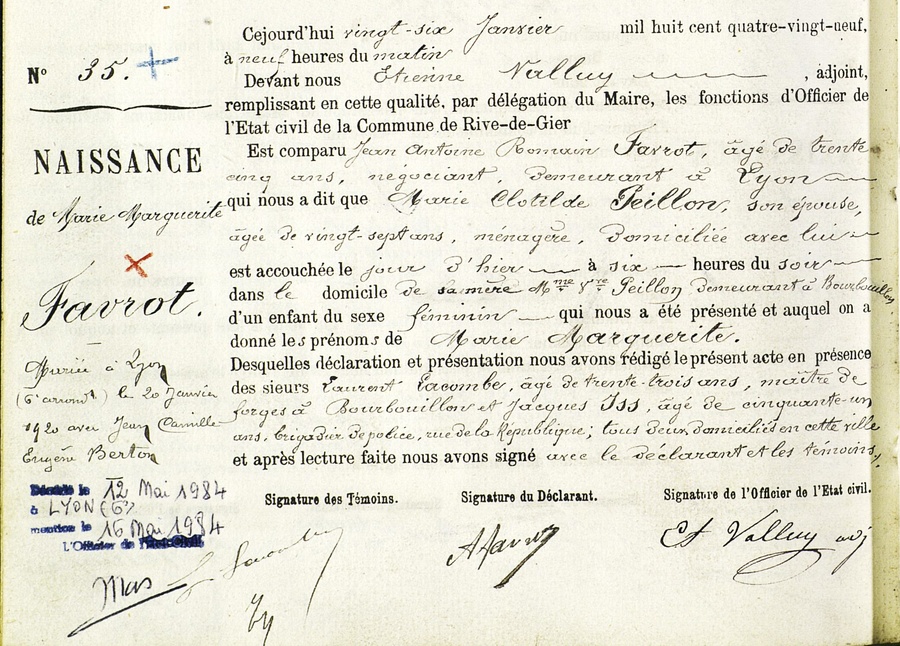 N° 35.
NAISSANCE
de Marie Marguerite
Favrot.
Mariée à Lyon
(6e arrondt) le 20 Janvier
1920 avec Jean Camille
Eugène Berton
Décédée le 12 Mai 1984
à LYON (6)
mention le 16 Mai 1984
L'Officier de l'Etat Civil
Cejourd'hui vingt-six Janvier mil huit cent quatre-vingt-neuf,
à neuf heures du matin
Devant nous Etienne Valluy , adjoint,
remplissant en cette qualité, par délégation du Maire, les fonctions d'Officier de
l'Etat civil de la Commune de Rive-de-Gier
Est comparu Jean Antoine Romain Favrot, âgé de trente
cinq ans, négociant, demeurant à Lyon
qui nous a dit que Marie Clotilde Peillon, son épouse,
âgée de vingt-sept ans, ménagère, domiciliée avec lui
est accouchée le jour d'hier à six heures du soir
dans le domicile de sa mère Mme Vve Peillon demeurant à Bourbouillon
d'un enfant du sexe féminin qui nous a été présenté et auquel on a
donné les prénoms de Marie Marguerite.
Desquelles déclaration et présentation nous avons rédigé le présent acte en présence
des sieurs Laurent Lacombe, âgé de trente-trois ans, maître de
forges à Bourbouillon et Jacques Iss, âgé de cinquante-un
ans, brigadier de police, rue de la République; tous deux domiciliés en cette ville
et après lecture faite nous avons signé avec le déclarant et les témoins,
Signature des Témoins. Signature du Déclarant. Signature de l'Officier de l'Etat civil.
L Lacombe A Favrot Et Valluy adj